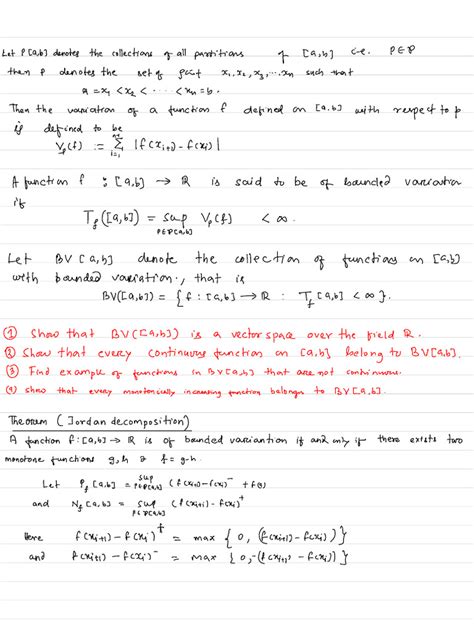 Let P[a,b] denotes the collections of all partitions of [a,b] i.e. P∈𝒫
then P denotes the set of pt x₁, x₂, x₃, ... xₙ such that
a = x₁ < x₂ < ... < xₙ = b.
Then the variation of a function f defined on [a,b] with respect to p
is defined to be
Vₚ(f) := Σᵢ₌₁ⁿ⁻¹ |f(xᵢ₊₁) - f(xᵢ)|
A function f : [a,b] → ℝ is said to be of bounded variation
if
T_f([a,b]) = sup_{P∈P[a,b]} Vₚ(f) < ∞.
Let BV[a,b] denote the collection of functions on [a,b]
with bounded variation, that is
BV([a,b]) = { f : [a,b] → ℝ : T_f[a,b] < ∞ }.
① Show that BV([a,b]) is a vector space over the field ℝ.
② Show that every continuous function on [a,b] belong to BV[a,b].
③ Find example of functions in BV[a,b] that are not continuous.
④ show that every monotonically increasing function belongs to BV[a,b].
Theorem (Jordan decomposition)
A function f: [a,b] → ℝ is of bounded variantion if and only if there exists two
monotone functions g, h & f = g-h.
Let P_f[a,b] = sup_{P∈P[a,b]} (f(xᵢ₊₁) - f(xᵢ))⁻ + f(a)
and N_f[a,b] = sup_{P∈P[a,b]} (f(xᵢ₊₁) - f(xᵢ))⁺
Here f(xᵢ₊₁) - f(xᵢ)⁺ = max { 0, (f(xᵢ₊₁) - f(xᵢ)) }
and f(xᵢ₊₁) - f(xᵢ)⁻ = max { 0, -(f(xᵢ₊₁) - f(xᵢ)) }